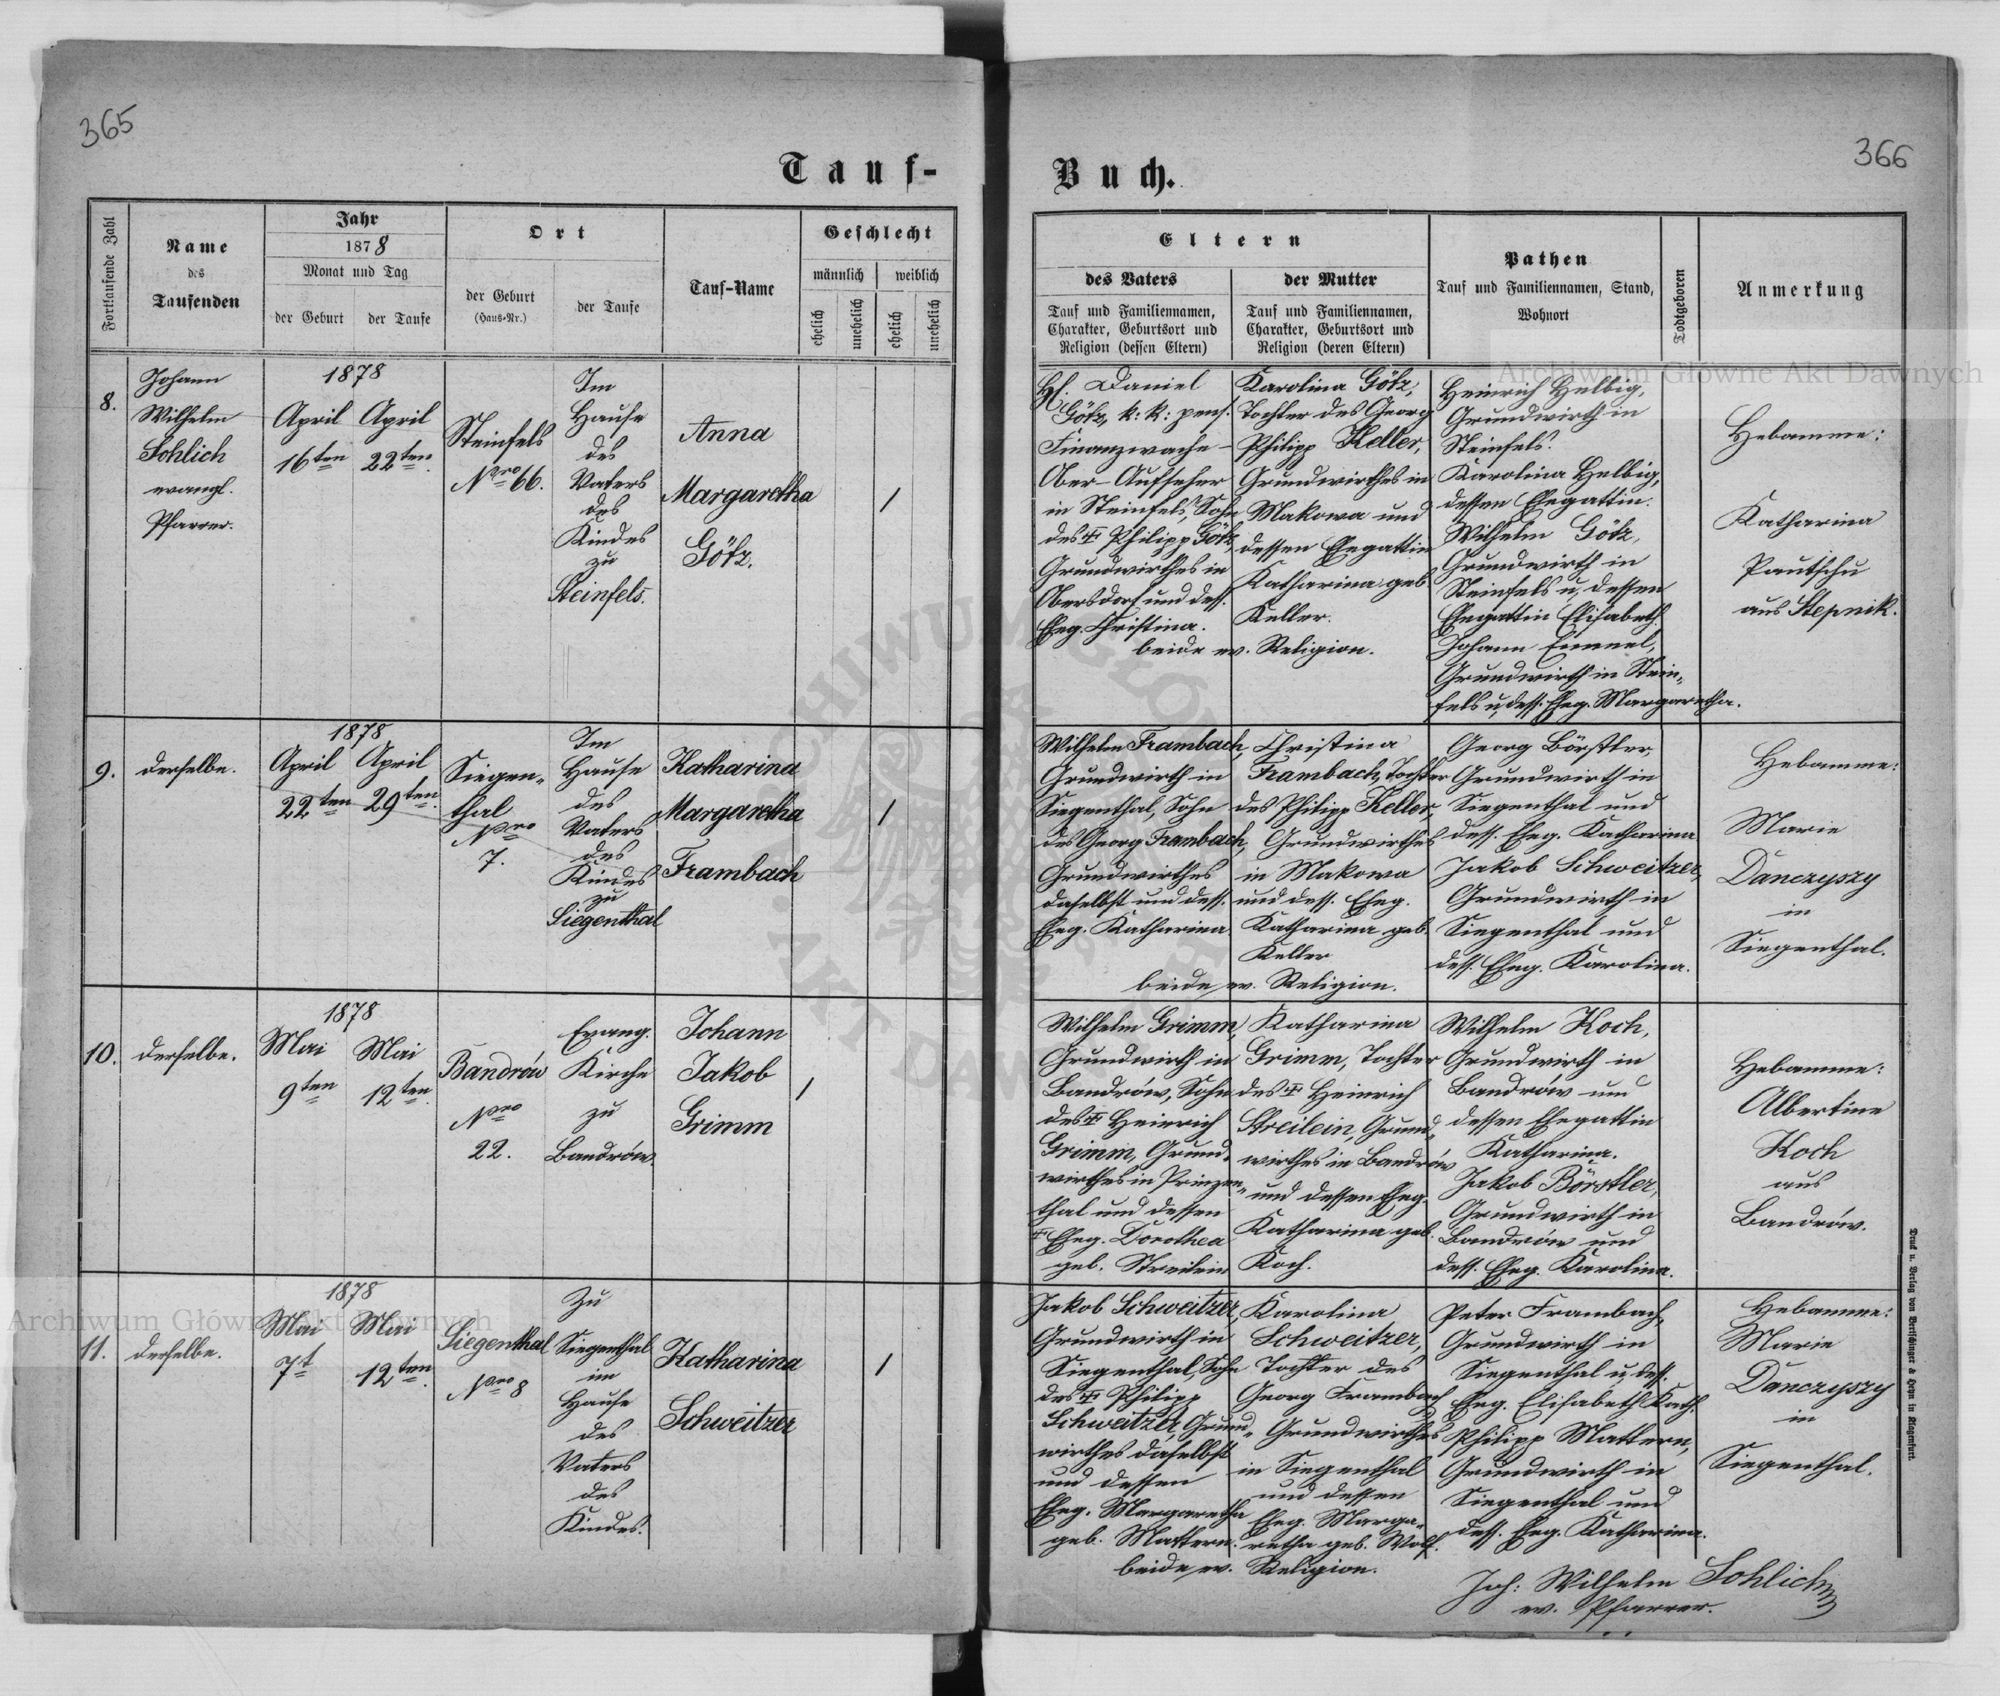 365
366
Tauf-
Buch.
Fortlaufende Zahl
Name
des
Taufenden
Jahr
1878
Monat und Tag
der Geburt
der Taufe
Ort
der Geburt
(Haus-Nr.)
der Taufe
Tauf-Name
Geschlecht
männlich
weiblich
ehelich
unehelich
ehelich
unehelich
Eltern
des Vaters
Tauf und Familiennamen,
Charakter, Geburtsort und
Religion (dessen Eltern)
der Mutter
Tauf und Familiennamen,
Charakter, Geburtsort und
Religion (deren Eltern)
Pathen
Tauf und Familiennamen, Stand,
Wohnort
Todtgeboren
Anmerkung
8.
Johann
Wilhelm
Sohlich
evangl.
Pfarrer.
1878
April
16ten
April
22ten
Steinfels
Nro 66.
Im
Hause
des
Vaters
des
Kindes
zu
Steinfels.
Anna
Margaretha
Götz.
/
H. Daniel
Götz, k: k: pens.
Finanzwache-
Ober-Aufseher
in Steinfels, Sohn
des ‡ Philipp Götz,
Grundwirthes in
Obersdorf und dess.
Eheg. Christina.
Karolina Götz,
Tochter des Georg
Philipp Keller,
Grundwirthes in
Makowa und
dessen Ehegattin
Katharina geb.
Keller.
beide ev. Religion.
Heinrich Helbig,
Grundwirth in
Steinfels.
Karolina Helbig,
dessen Ehegattin.
Wilhelm Götz,
Grundwirth in
Steinfels u. dessen
Ehegattin Elisabeth.
Johann
Grundwirth in Stein-
fels u. dess. Eheg. Margaretha.
Hebamme:
Katharina
Pautschu
aus Stepnik.
9.
derselbe.
1878
April
22ten
April
29ten
Siegen-
thal
Nro
7.
Im
Hause
des
Vaters
des
Kindes
zu
Siegenthal
Katharina
Margaretha
Frambach
/
Wilhelm Frambach,
Grundwirth in
Siegenthal, Sohn
des Georg Frambach,
Grundwirthes
daselbst und dess.
Eheg. Katharina
Christina
Frambach, Tochter
des Philipp Keller,
Grundwirthes
in Makowa
und dess. Eheg.
Katharina geb.
Keller
beide ev. Religion.
Georg Börstler,
Grundwirth in
Siegenthal und
dess. Eheg. Katharina
Jakob Schweitzer,
Grundwirth in
Siegenthal und
dess. Eheg. Karolina.
Hebamme:
Marie
Danczyszy
in
Siegenthal.
10.
derselbe.
1878
Mai
9ten
Mai
12ten
Bandrów
Nro
22.
Evang.
Kirche
zu
Bandrów.
Johann
Jakob
Grimm
/
Wilhelm Grimm,
Grundwirth in
Bandrów, Sohn
des ‡ Heinrich
Grimm, Grund-
wirthes in Prinzen-
thal und dessen
‡ Eheg. Dorothea
geb. Streilein
Katharina
Grimm, Tochter
des ‡ Heinrich
Streilein, Grund-
wirthes in Bandrów
und dessen Eheg.
Katharina geb.
Koch.
Wilhelm Koch,
Grundwirth in
Bandrów und
dessen Ehegattin
Katharina.
Jakob Börstler,
Grundwirth in
Bandrów und
dess. Eheg. Karolina.
Hebamme:
Albertine
Koch
aus
Bandrów.
11.
derselbe.
1878
Mai
7t
Mai
12ten
Siegenthal
Nro 8
Zu
Siegenthal
im
Hause
des
Vaters
des
Kindes.
Katharina
Schweitzer
/
Jakob Schweitzer,
Grundwirth in
Siegenthal, Sohn
des ‡ Philipp
Schweitzer, Grund-
wirthes daselbst
und dessen
Eheg. Margaretha
geb. Mattern.
Karolina
Schweitzer,
Tochter des
Georg Frambach
Grundwirthes
in Siegenthal
und dessen
Eheg. Marga-
retha geb. Wolf.
beide ev. Religion.
Peter Frambach,
Grundwirth in
Siegenthal u. dess.
Eheg. Elisabeth Kath.
Philipp Mattern,
Grundwirth in
Siegenthal und
dess. Eheg. Katharina.
Hebamme:
Marie
Danczyszy
in
Siegenthal.
Joh: Wilhelm Sohlich
ev. Pfarrer.
Druck u. Verlag von Bertschinger & Heyn in Klagenfurt.
Archiwum Główne Akt Dawnych
Archiwum Główne Akt Dawnych